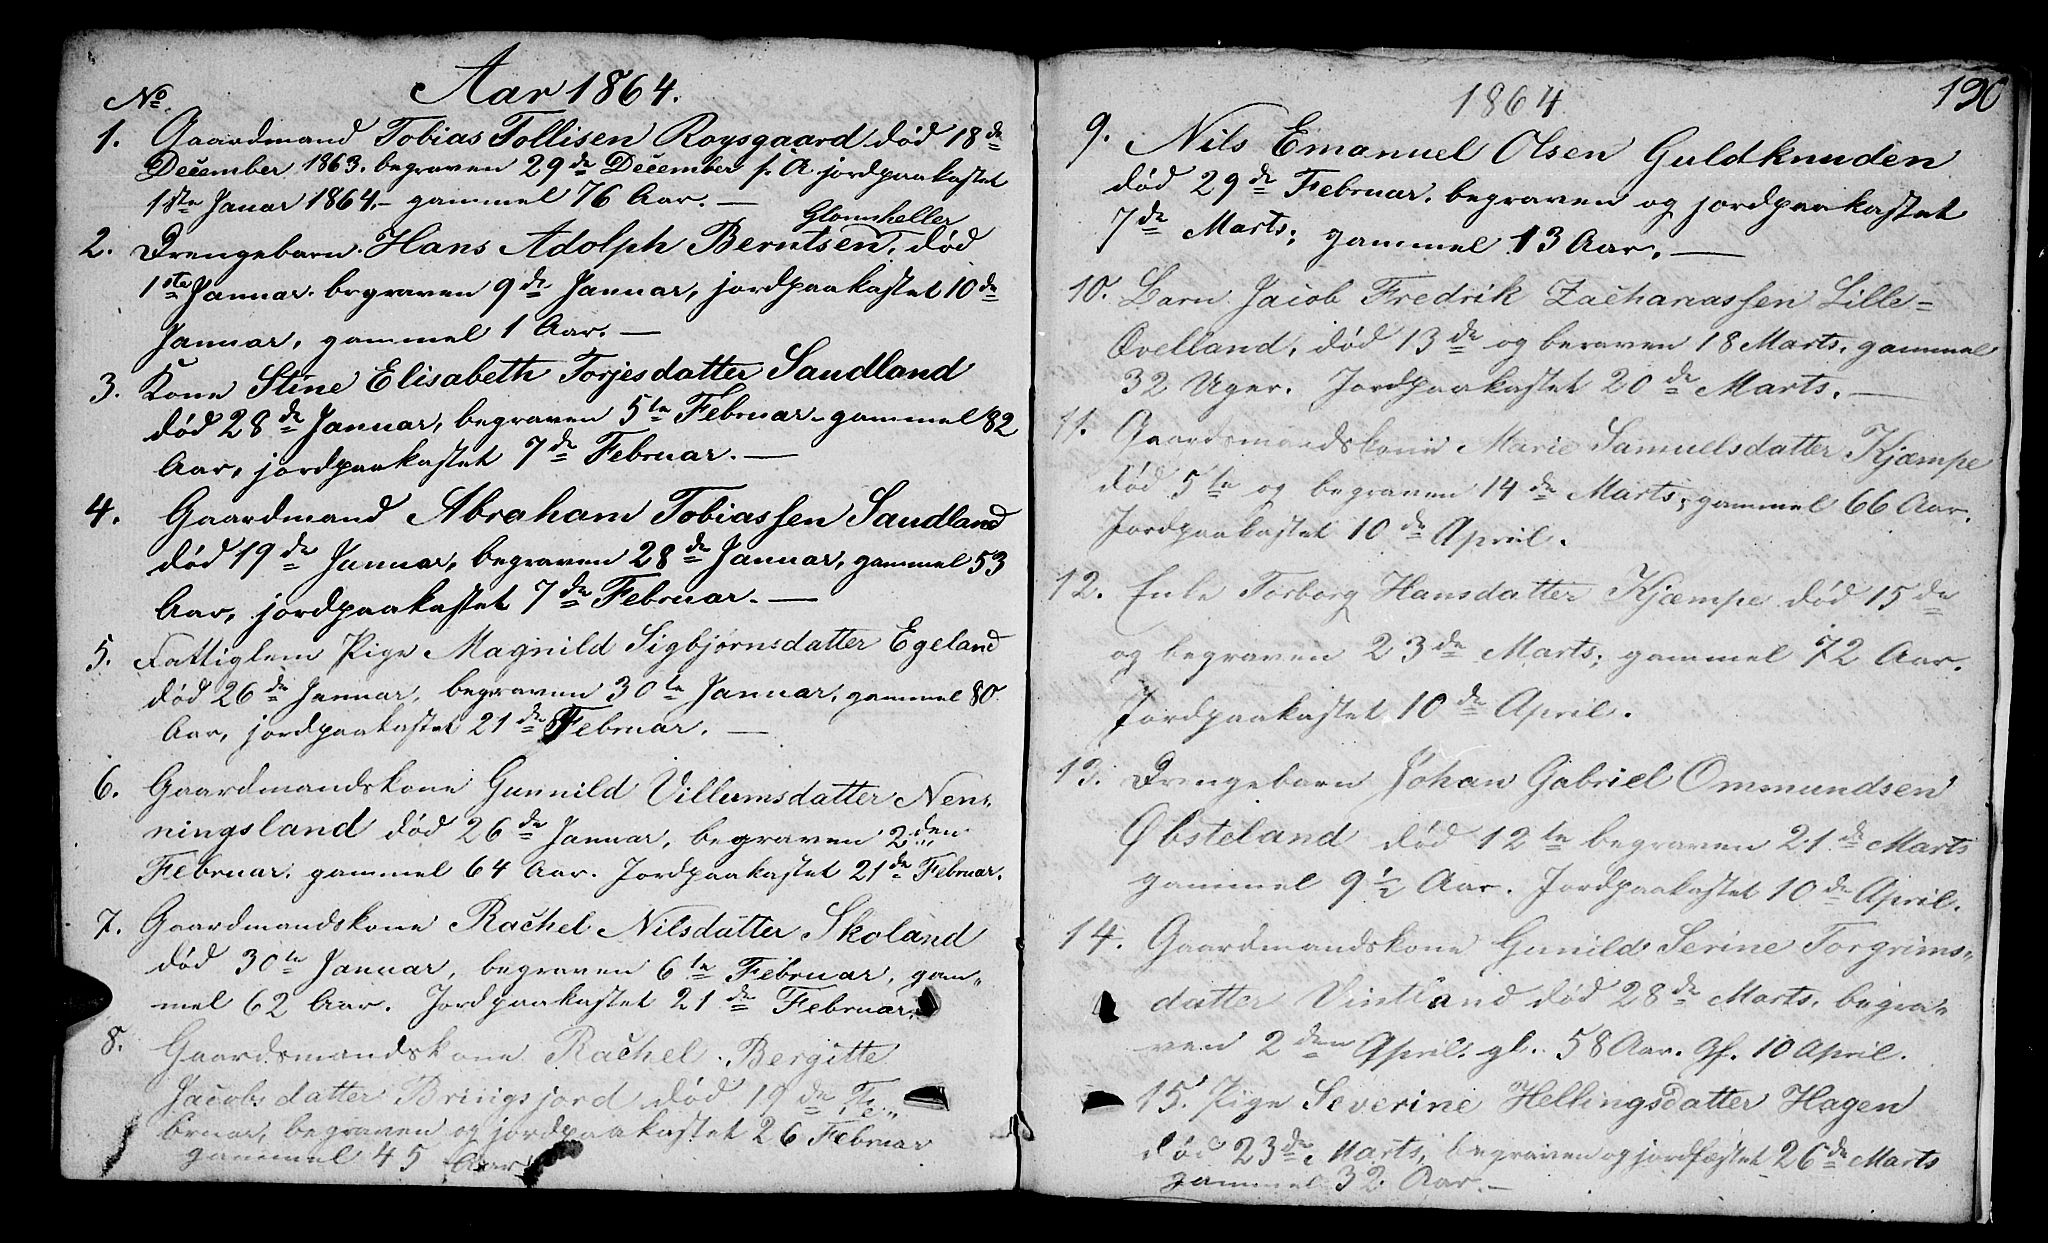 Aar 1864.
No.
1. Gaardmand Tobias Tollisen Roysgaard død 18de
December 1863. begraven 29de December s. A. jordpaakastet
1ste Januar 1864. - gammel 76 Aar. —
Glomheller
2. Drengebarn Hans Adolph Berntsen, død
1ste Januar. begraven 9de Januar, jordpaakastet 10de
Januar, gammel 1 Aar. —
3. Kone Stine Elisabeth Torjesdatter Saudland
død 28de Januar, begraven 5te Februar - gammel 82
Aar, jordpaakastet 7de Februar. —
4. Gaardmand Abraham Tobiassen Saudland
død 19de Januar, begraven 28de Januar, gammel 53
Aar, jordpaakastet 7de Februar. —
5. Fattiglem Pige Magnild Sigbjørnsdatter Egeland
død 26de Januar, begraven 30te Januar, gammel 80
Aar, jordpaakastet 21de Februar. —
6. Gaardmandskone Gunnild Villumsdatter Nen-
ningsland død 26de Januar, begraven 2den
Februar, gammel 64 Aar. Jordpaakastet 21de Februar.
7. Gaardmandskone Rachel Nilsdatter Skoland
død 30te Januar, begraven 6te Februar, gam-
mel 62 Aar. Jordpaakastet 21de Februar.
8. Gaardsmandskone Rachel Bergitte
Jacobsdatter Bringsjord død 19de Fe-
bruar, begraven og jordpaakastet 26 Februar
gammel 45 Aar
1864
190
9. Nils Emanuel Olsen Guldknuden
død 29de Februar. begraven og jordpaakastet
7de Marts; gammel 13 Aar. —
10. Barn Jacob Fredrik Zachariassen Lille-
Øvelland, død 13de og beraven 18 Marts, gammel
32 Uger. Jordpaakastet 20de Marts. —
11. Gaardsmandskone Marie Samuelsdatter Kjæmpe
død 5te og begraven 14de Marts; gammel 66 Aar.
Jordpaakastet 10de April.
12. Enke Torborg Hansdatter Kjæmpe død 15de
og begraven 23de Marts; gammel 72 Aar.
Jordpaakastet 10de April.
13. Drengebarn Johan Gabriel Ommundsen
Øbsteland død 12te begraven 21de Marts
gammel 9½ Aar. Jordpaakastet 10de April.
14. Gaardmandskone Gunild Serine Torgrims-
datter Vintland død 28de Marts, begra-
ven 2den April. gl. 58 Aar. Jf. 10 April.
15. Pige Severine Hellingsdatter Hagen
død 23de Marts, begraven og jordfæstet 26de Marts
gammel 32 Aar. —